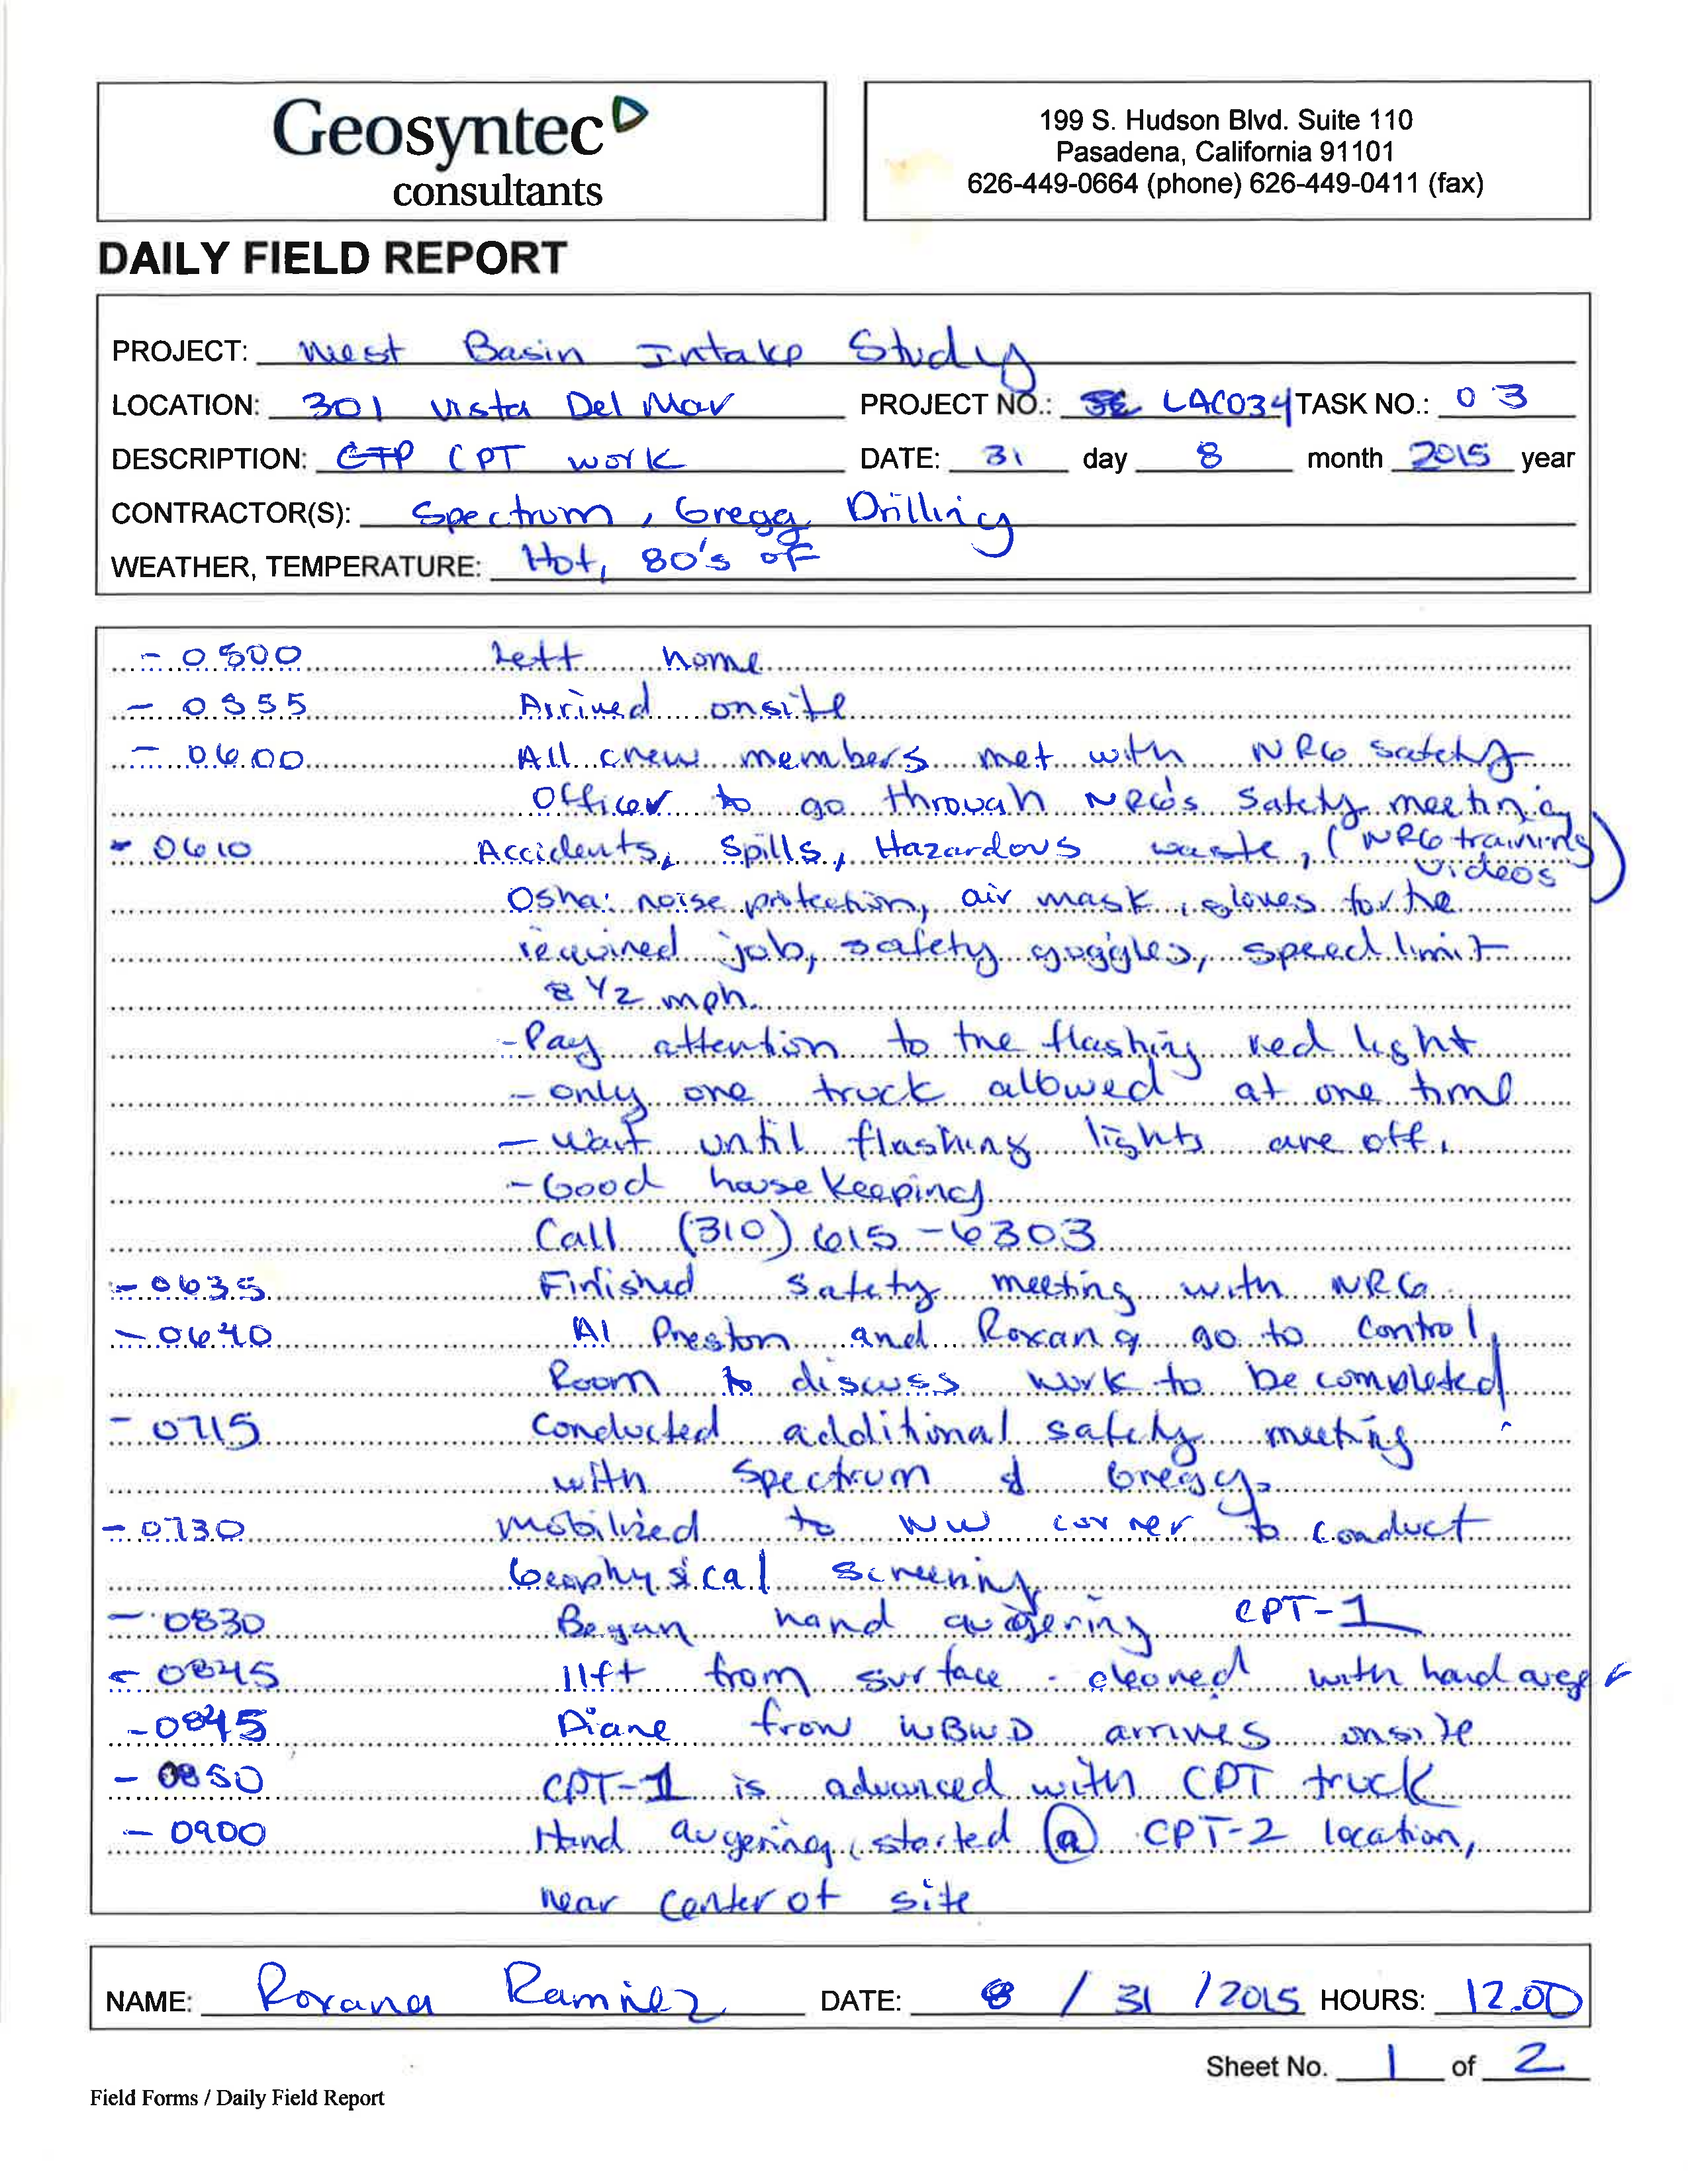 Geosyntec
consultants
199 S. Hudson Blvd. Suite 110
Pasadena, California 91101
626-449-0664 (phone) 626-449-0411 (fax)
DAILY FIELD REPORT
PROJECT: West Basin Intake Study
LOCATION: 301 Vista Del Mar PROJECT NO.: LAC034 TASK NO.: 03
DESCRIPTION: CTP CPT work DATE: 31 day 8 month 2015 year
CONTRACTOR(S): Spectrum, Gregg Drilling
WEATHER, TEMPERATURE: Hot, 80's °F
- 0500 Left home
- 0555 Arrived onsite
- 0600 All crew members met with NRG safety
Officer to go through NRG's Safety meeting
- 0610 Accidents, Spills, Hazardous waste, (NRG training
videos)
Osha: noise protection, air mask, gloves for the
required job, safety goggles, speed limit
8 1/2 mph.
- Pay attention to the flashing red light
- only one truck allowed at one time
- wait until flashing lights are off.
- Good house keeping
Call (310) 615-6303
- 0635 Finished safety meeting with NRG
- 0640 Al Preston and Roxana go to Control
Room to discuss work to be completed
- 0715 Conducted additional safety meeting
with Spectrum & Gregg
- 0730 Mobilized to NW corner to conduct
Geophysical screening
- 0830 Began hand augering CPT-1
- 0845 11ft from surface - cleared with hand auger
- 0845 Diane from WBWD arrives onsite
- 0850 CPT-1 is advanced with CPT truck
- 0900 Hand augering started @ CPT-2 location,
near center of site
NAME: Roxana Ramirez DATE: 8 / 31 / 2015 HOURS: 12.00
Sheet No. 1 of 2
Field Forms / Daily Field Report